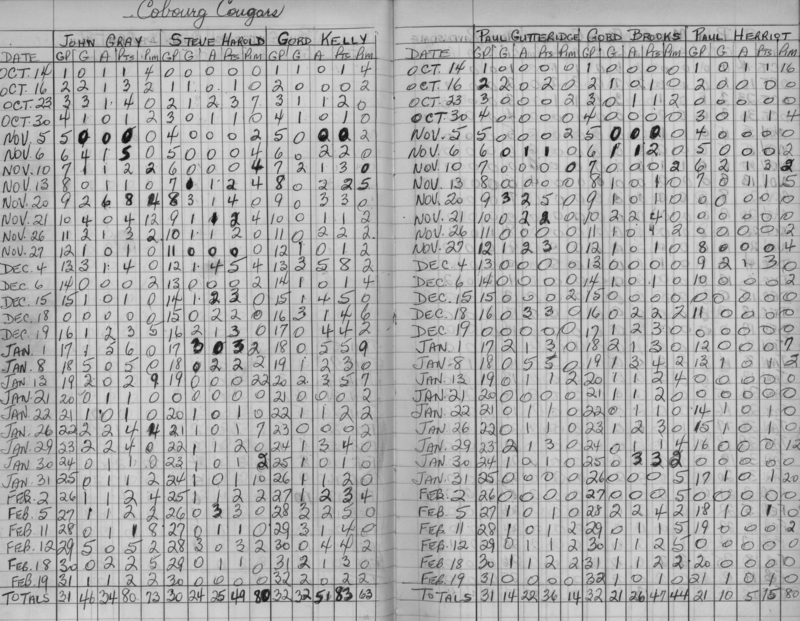 Cobourg Cougars
JOHN GRAY STEVE HAROLD GORD KELLY
DATE GP G A Pts Pim GP G A Pts Pim GP G A Pts Pim
OCT. 14 1 0 1 1 4 0 0 0 0 0 1 1 0 1 4
OCT. 16 2 2 1 3 2 1 1 0 1 0 2 0 0 0 2
OCT. 23 3 3 1 4 0 2 1 2 3 7 3 1 1 2 0
OCT. 30 4 1 0 1 2 3 0 1 1 0 4 1 0 1 0
NOV. 5 5 0 0 0 0 4 0 0 0 2 5 0 2 2 2
NOV. 6 6 4 1 5 0 5 0 0 0 4 6 0 2 2 0
NOV. 10 7 1 1 2 2 6 0 0 0 4 7 2 1 3 0
NOV. 13 8 0 1 1 0 7 1 1 2 4 8 0 2 2 5
NOV. 20 9 2 6 8 4 8 3 1 4 0 9 0 3 3 0
NOV. 21 10 4 0 4 12 9 1 1 2 4 10 0 1 1 2
NOV. 26 11 2 1 3 2 10 1 1 2 0 11 0 2 2 2
NOV. 27 12 1 0 1 0 11 0 0 0 0 12 1 0 1 2
DEC. 4 13 3 1 4 0 12 1 4 5 4 13 3 5 8 2
DEC. 6 14 0 0 0 2 13 0 0 0 2 14 1 0 1 4
DEC. 15 15 1 0 1 0 14 1 2 3 0 15 1 4 5 0
DEC. 18 0 0 0 0 0 15 0 2 2 0 16 3 1 4 6
DEC. 19 16 1 2 3 5 16 2 1 3 0 17 0 4 4 2
JAN. 1 17 1 5 6 0 17 3 0 3 2 18 0 5 5 9
JAN. 8 18 5 0 5 0 18 0 2 2 2 19 1 2 3 0
JAN 13 19 2 0 2 9 19 0 0 0 22 20 2 3 5 7
JAN 21 20 0 1 1 0 0 0 0 0 0 21 0 0 0 2
JAN 22 21 1 0 1 0 20 1 0 1 0 22 1 1 2 2
JAN. 26 22 2 2 4 4 21 1 0 1 7 23 0 0 0 2
JAN. 29 23 2 2 4 0 22 1 1 2 0 24 1 3 4 0
JAN 30 24 0 1 1 0 23 1 0 1 2 25 1 0 1 0
JAN. 31 25 0 1 1 2 24 1 0 1 10 26 1 1 2 0
FEB. 2 26 1 1 2 4 25 1 1 2 2 27 1 2 3 4
FEB. 5 27 1 1 2 2 26 0 3 3 0 28 3 2 5 0
FEB. 11 28 0 1 1 8 27 0 1 1 0 29 3 1 4 0
FEB. 12 29 5 0 5 2 28 3 0 3 2 30 0 4 4 2
FEB. 18 30 0 2 2 5 29 0 1 1 0 31 2 1 3 0
FEB. 19 31 1 1 2 2 30 0 0 0 0 32 2 0 2 2
TOTALS 31 46 34 80 73 30 24 25 49 80 32 32 51 83 63
PAUL GUTTERIDGE GORD BROOKS PAUL HERRIOT
DATE GP G A Pts Pim GP G A Pts Pim GP G A Pts Pim
OCT. 14 1 0 0 0 0 1 0 0 0 0 1 0 1 1 16
OCT. 16 2 2 0 2 0 2 1 0 1 0 2 0 0 0 0
OCT. 23 3 0 0 0 2 3 0 1 1 2 0 0 0 0 0
OCT. 30 4 0 0 0 0 4 0 0 0 0 3 0 1 1 4
NOV. 5 5 0 0 0 2 5 0 0 0 0 4 0 0 0 0
NOV. 6 6 0 1 1 0 6 1 1 2 0 5 0 0 0 2
NOV. 10 7 0 0 0 0 7 0 0 0 2 6 2 1 3 2
NOV. 13 8 0 0 0 0 8 1 0 1 0 7 0 1 1 5
NOV. 20 9 3 2 5 0 9 1 0 1 0 0 0 0 0 0
NOV. 21 10 0 2 2 0 10 2 2 4 0 0 0 0 0 0
NOV. 26 11 0 0 0 0 11 0 0 0 0 0
NOV. 27 12 1 2 3 0 12 1 0 1 0 8 0 0 0 4
DEC. 4 13 0 0 0 0 13 0 0 0 0 9 2 1 3 0
DEC. 6 14 0 0 0 0 14 1 0 1 0 10 0 0 0 2
DEC. 15 15 0 0 0 2 15 0 0 0 0 0 0 0 0 0
DEC. 18 16 0 3 3 0 16 0 2 2 2 11 0 0 0 0
DEC. 19 0 0 0 0 0 17 1 2 3 0 0 0 0 0 0
JAN. 1 17 2 1 3 0 18 2 1 3 0 12 0 0 0 7
JAN. 8 18 0 5 5 0 19 1 3 4 2 13 1 0 1 2
JAN. 13 19 0 1 1 2 20 1 1 2 4 0 0 0 0 0
JAN. 21 20 0 0 0 0 21 1 1 2 0 0 0 0 0 0
JAN. 22 21 0 1 1 0 22 0 1 1 0 14 1 0 1 0
JAN. 26 22 0 1 1 0 23 1 2 3 0 15 1 0 1 0
JAN. 29 23 2 1 3 0 24 0 1 1 4 16 0 0 0 12
JAN 30 24 1 0 1 0 25 0 3 3 2 0 0 0 0 0
JAN. 31 25 0 0 0 0 26 0 0 0 5 17 1 0 1 20
FEB. 2 26 0 0 0 0 27 0 0 0 5 0 0 0 0 0
FEB. 5 27 1 0 1 0 28 2 2 4 2 18 1 0 1
FEB. 11 28 1 0 1 2 29 0 1 1 5 19 0 0 0 2
FEB. 12 29 0 1 1 2 30 1 1 2 5 0 0 0 0 0
FEB. 18 30 1 1 2 2 31 1 1 2 2 20 0 0 0 0
FEB. 19 31 0 0 0 0 32 1 0 1 0 21 1 0 1 0
TOTALS 31 14 22 36 14 32 21 26 47 44 21 10 5 15 80